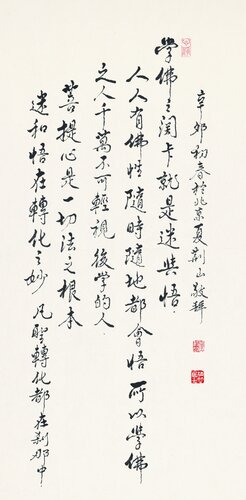 辛卯初春於北京夏荆山敬拜
學佛之関卡就是迷與悟
人人有佛性隨時隨地都會悟 所以學佛
之人千萬不可輕視後學的人
菩提心是一切法之根本
迷和悟在轉化之妙 凡聖轉化都在刹那中